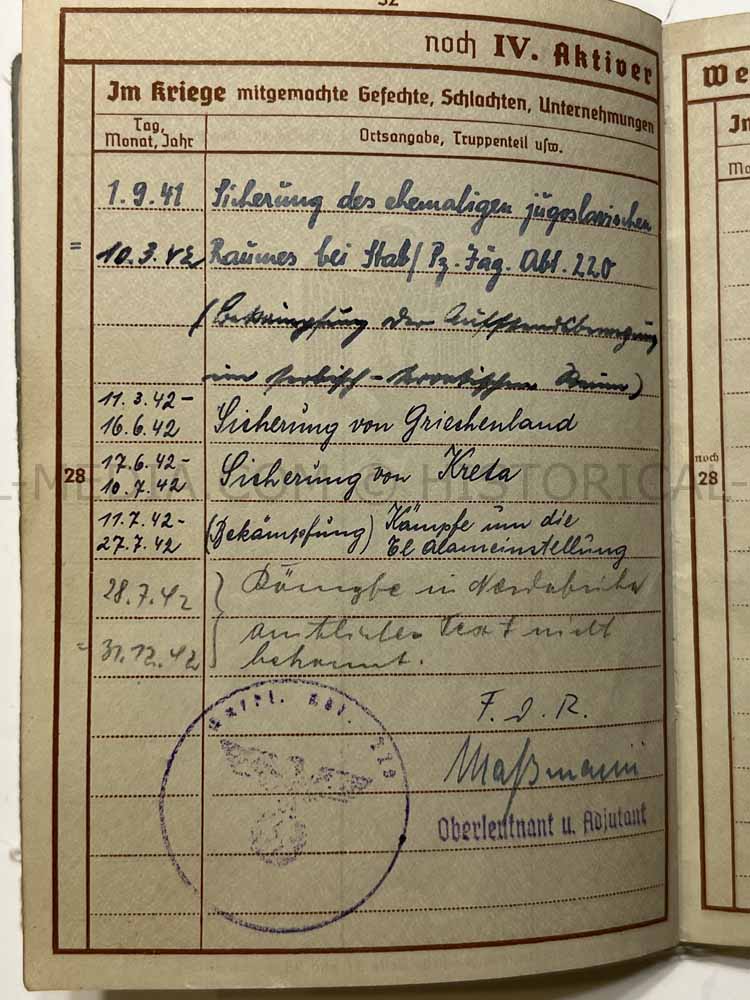 32
noch IV. Aktiver
Im Kriege mitgemachte Gefechte, Schlachten, Unternehmungen
Tag, Monat, Jahr
Ortsangabe, Truppenteil usw.
1.9.41 Sicherung des ehemaligen jugoslavischen
= 10.3.42 Raumes bei Stab/ Pz. Jäg. Abt. 220
(Bekämpfung der Aufstandsbewegung
im serbisch-kroatischen Raum)
11.3.42-
16.6.42 Sicherung von Griechenland
28
17.6.42-
10.7.42 Sicherung von Kreta
11.7.42- (Bekämpfung) Kämpfe um die
27.7.42 El Alameinstellung
28.7.42 } Kämpfe in Nordafrika
amtlicher Text nicht
= 31.12.42 bekannt.
F. d. R.
Maßmann
Oberleutnant u. Adjutant
We
In
Mo
noch
28
L-MEDIA.COM © HISTORICAL-